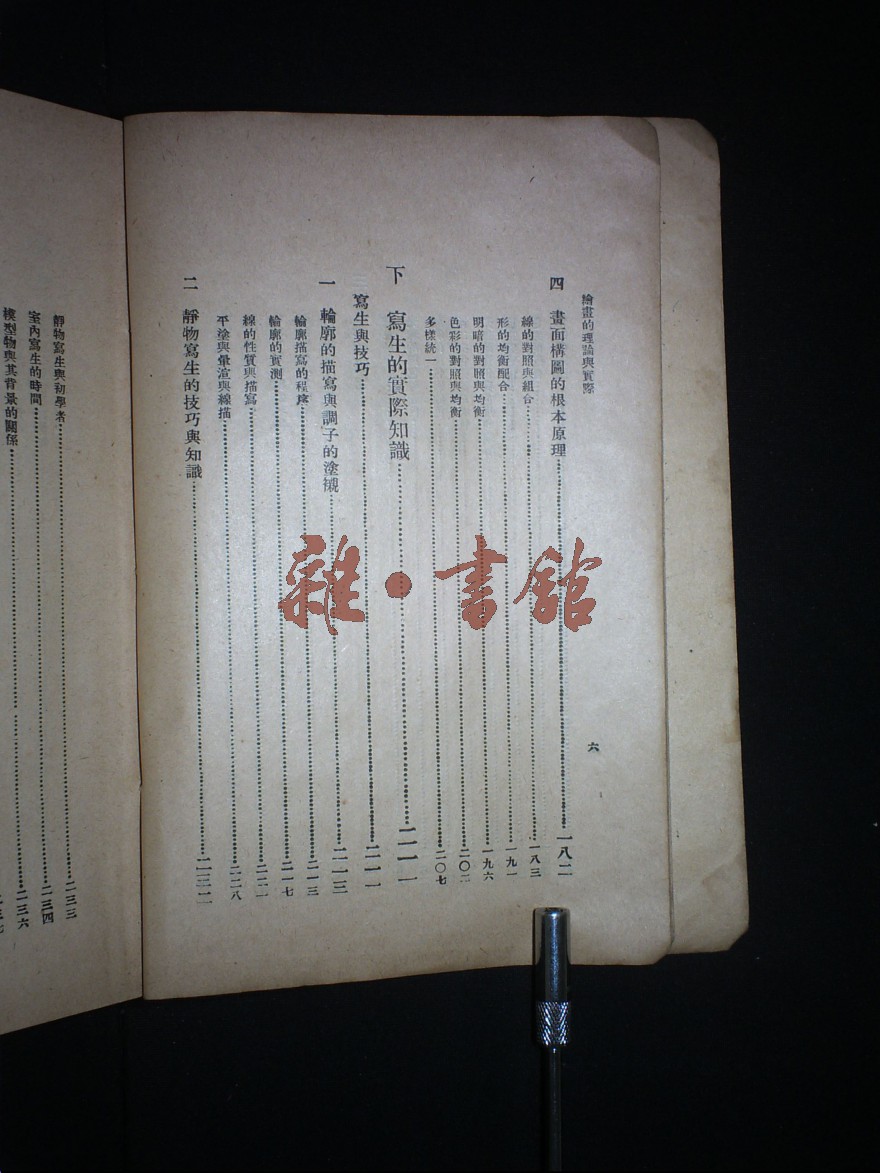 繪畫的理論與實際
六
四 畫面構圖的根本原理……一八二
線的對照與組合……一八三
形的均衡配合……一九一
明暗的對照與均衡……一九六
色彩的對照與均衡……二〇二
多樣統一……二〇七
下 寫生的實際知識……二一一
寫生與技巧……二一一
一 輪廓的描寫與調子的塗襯……二一三
輪廓描寫的程序……二一三
輪廓的實測……二一七
線的性質與描寫……二二一
平塗與暈渲與線描……二二八
二 靜物寫生的技巧與知識……二三二
靜物寫生與初學者……二三三
室內寫生的時間……二三四
模型物與其背景的關係……二三六
雜·書館